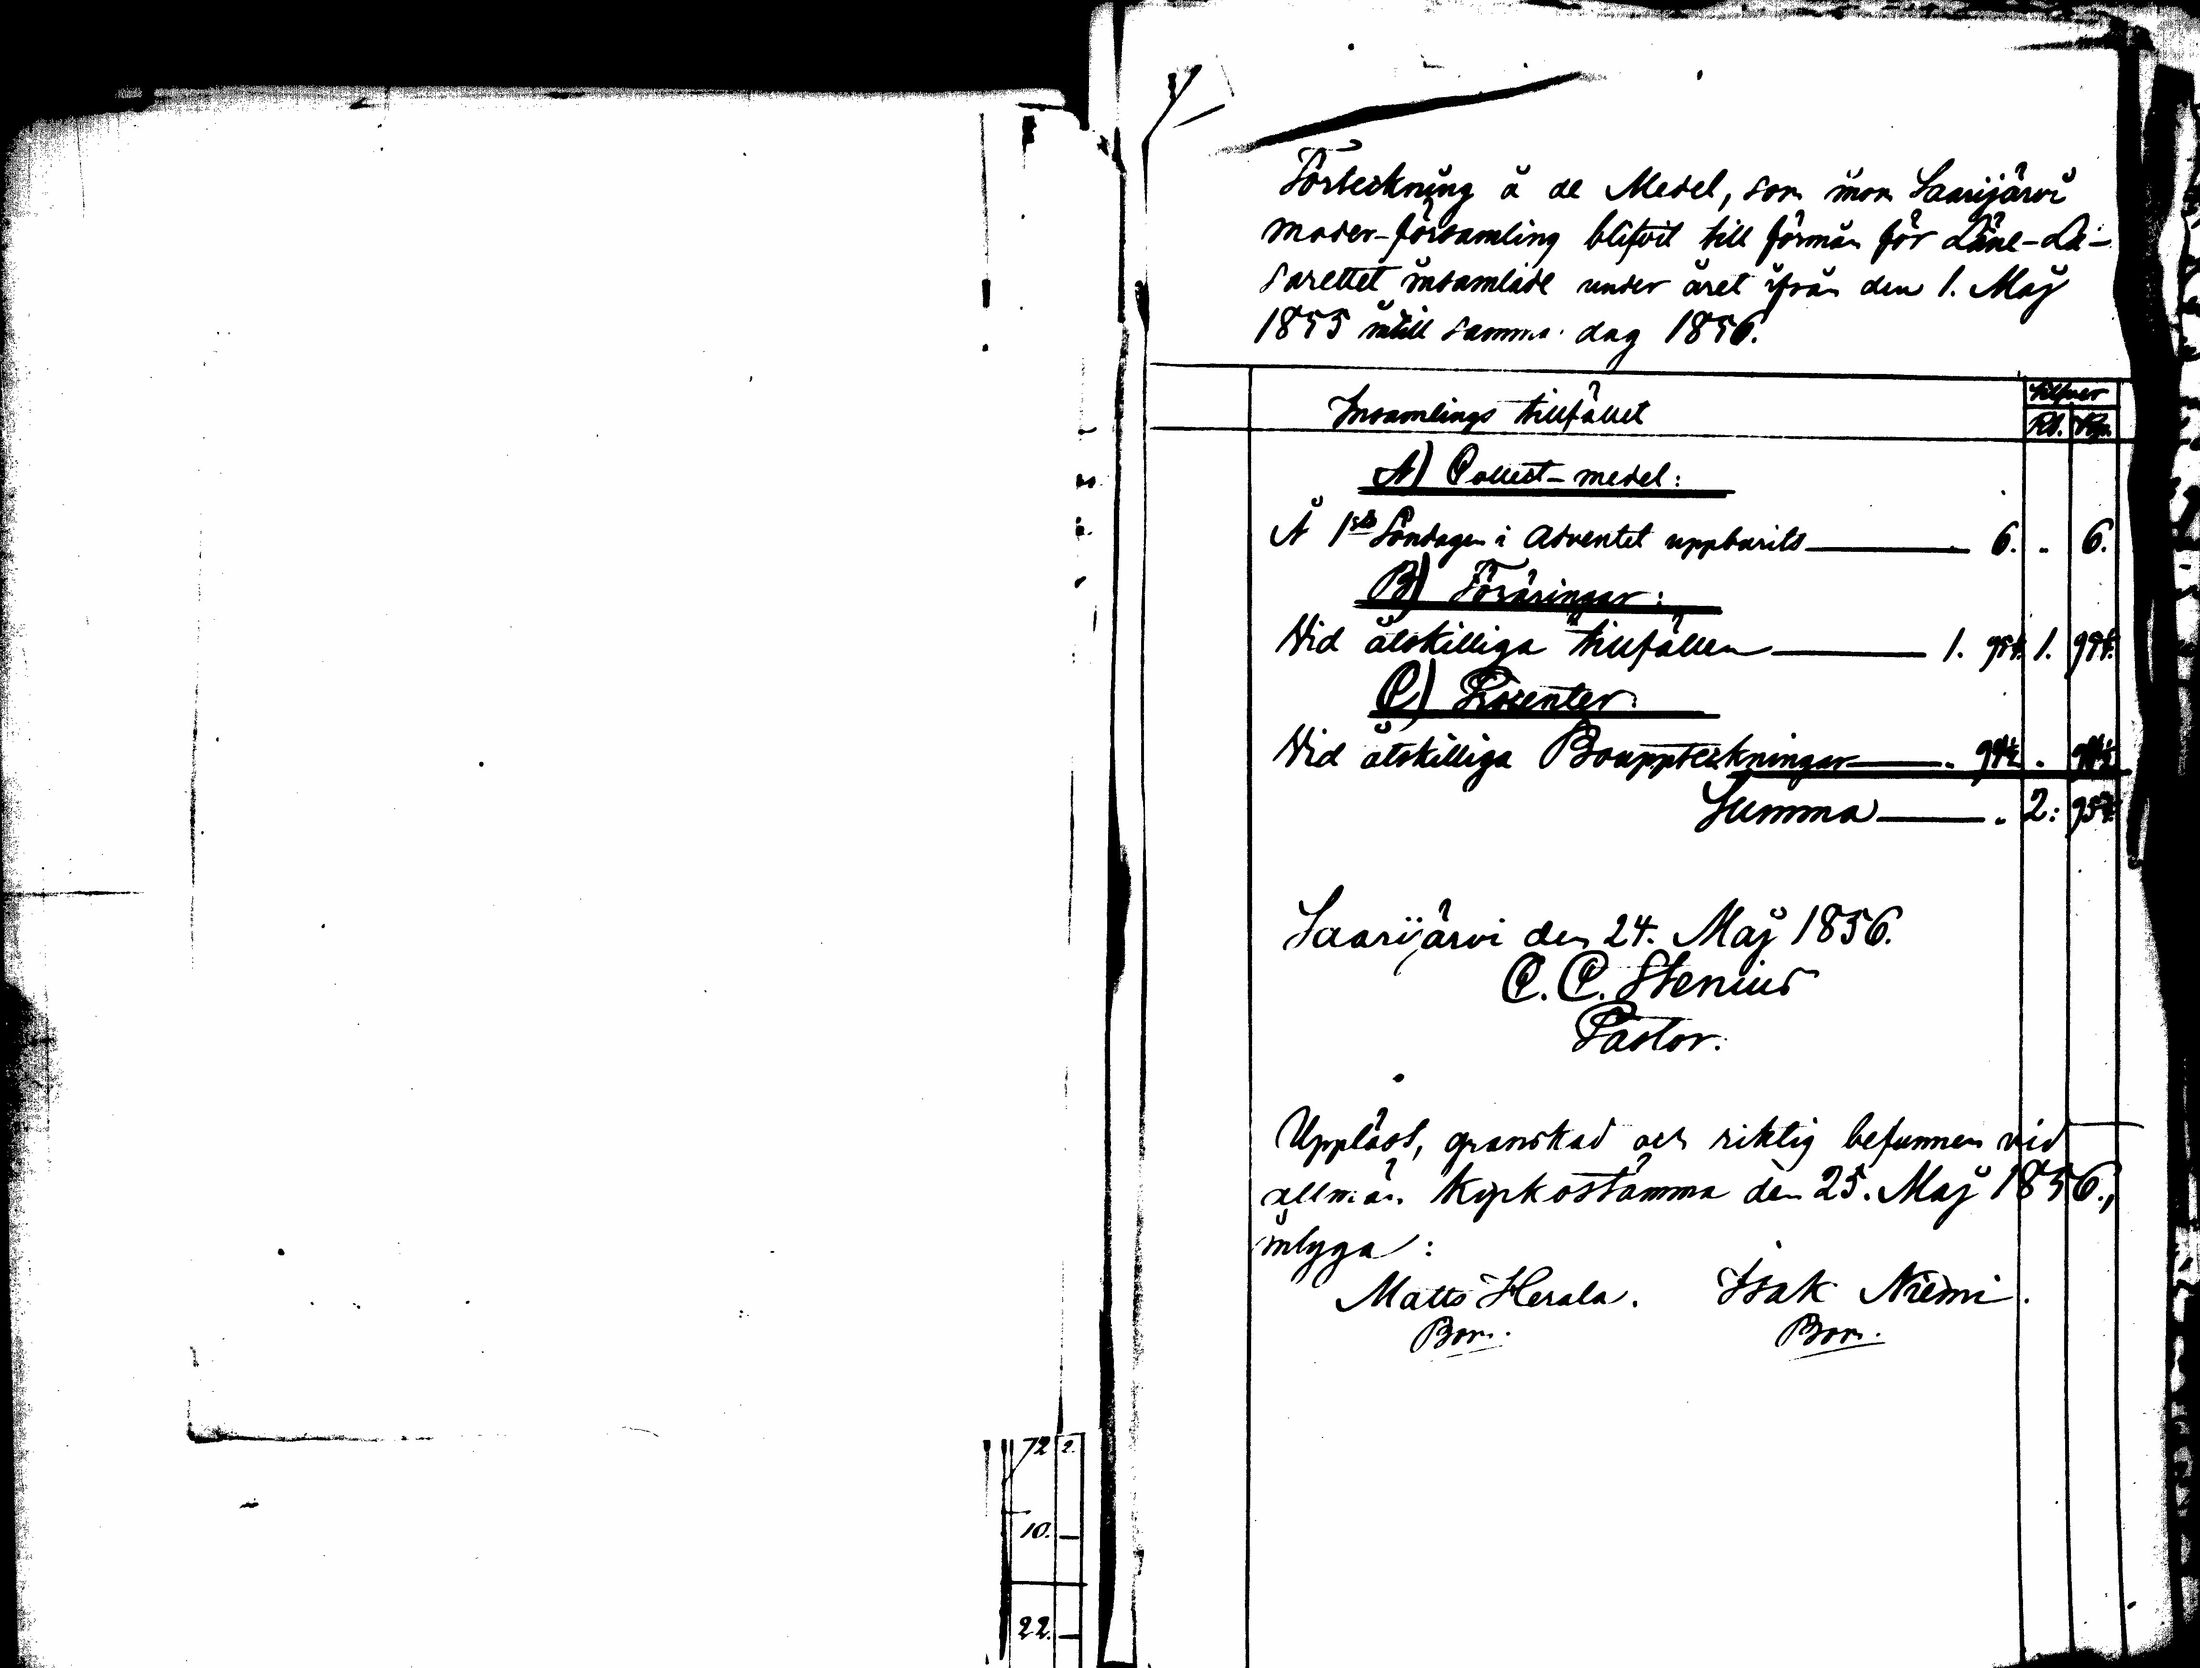 72 2.
10. —
22. —
Förteckning å de Medel, som inom Saarijärvi
moder-församling blifvit till förmån för Läne-La-
sarettet insamlade under året ifrån den 1. Maj
1855 intill samma dag 1856.
Silfver
Insamlings tillfället Rb. Kp.
A) Collect-medel:
Å 1sta Söndagen i Adventet uppburits — 6. . 6.
B) Föräringar:
Vid åtskilliga tillfällen — 1. 1.
C) Procenter.
Vid åtskilliga Bouppteckningar — . .
Summa — . 2:
Saarijärvi den 24. Maj 1856.
C. C. Stenius
Pastor.
Uppläst, granskad och riktig befunnen vid
allmän Kyrkostämma den 25. Maj 1856.,
intyga:
Matts Herala. Isak Niemi.
Bom. Bom.